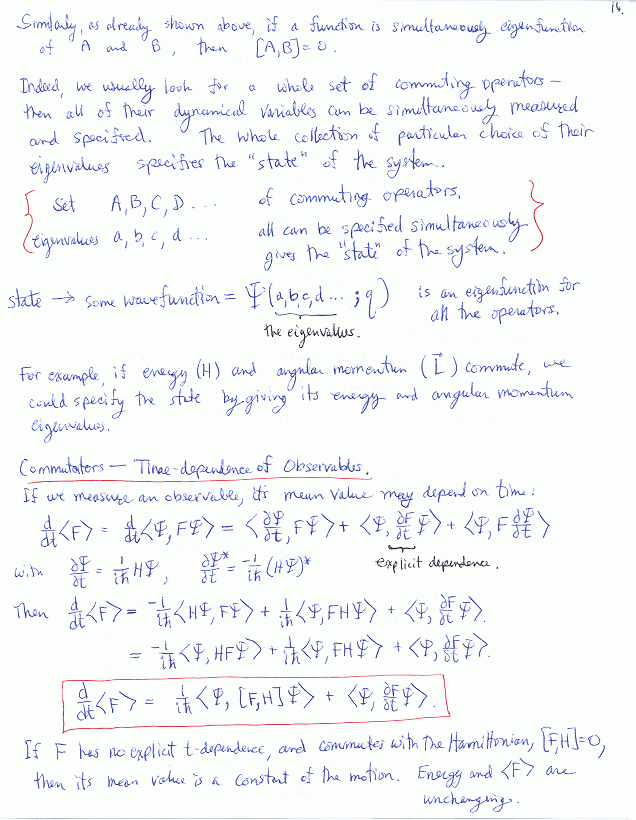 16.
Similarly, as already shown above, if a function is simultaneously eigenfunction
of A and B, then [A,B]=0.
Indeed, we usually look for a whole set of commuting operators —
then all of their dynamical variables can be simultaneously measured
and specified. The whole collection of particular choice of their
eigenvalues specifies the "state" of the system..
{ Set A, B, C, D ... of commuting operators,
eigenvalues a, b, c, d ... all can be specified simultaneously
gives the "state" of the system. }
state → some wavefunction = Ψ(a,b,c,d ... ; q) is an eigenfunction for
all the operators.
the eigenvalues.
For example, if energy (H) and angular momentum (L⃗) commute, we
could specify the state by giving its energy and angular momentum
eigenvalues.
Commutators — Time-dependence of Observables.
If we measure an observable, its mean value may depend on time:
d/dt <F> = d/dt <Ψ, FΨ> = <∂Ψ/∂t, FΨ> + <Ψ, ∂F/∂t Ψ> + <Ψ, F ∂Ψ/∂t>
explicit dependence.
with ∂Ψ/∂t = 1/iħ HΨ, ∂Ψ*/∂t = -1/iħ (HΨ)*
Then d/dt <F> = -1/iħ <HΨ, FΨ> + 1/iħ <Ψ, FHΨ> + <Ψ, ∂F/∂t Ψ>.
= -1/iħ <Ψ, HFΨ> + 1/iħ <Ψ, FHΨ> + <Ψ, ∂F/∂t Ψ>.
d/dt <F> = 1/iħ <Ψ, [F,H]Ψ> + <Ψ, ∂F/∂t Ψ>.
If F has no explicit t-dependence, and commutes with the Hamiltonian, [F,H]=0,
then its mean value is a constant of the motion. Energy and <F> are
unchanging.